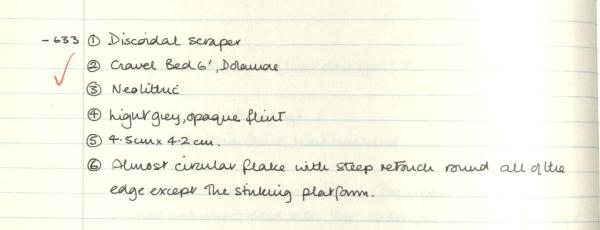 - 633 ① Discoidal scraper
② Gravel Bed 6',
③ Neolithic
④ Light grey, opaque flint
⑤ 4.5cm x 4.2 cm.
⑥ Almost circular flake with steep retouch round all of the
edge except the striking platform.